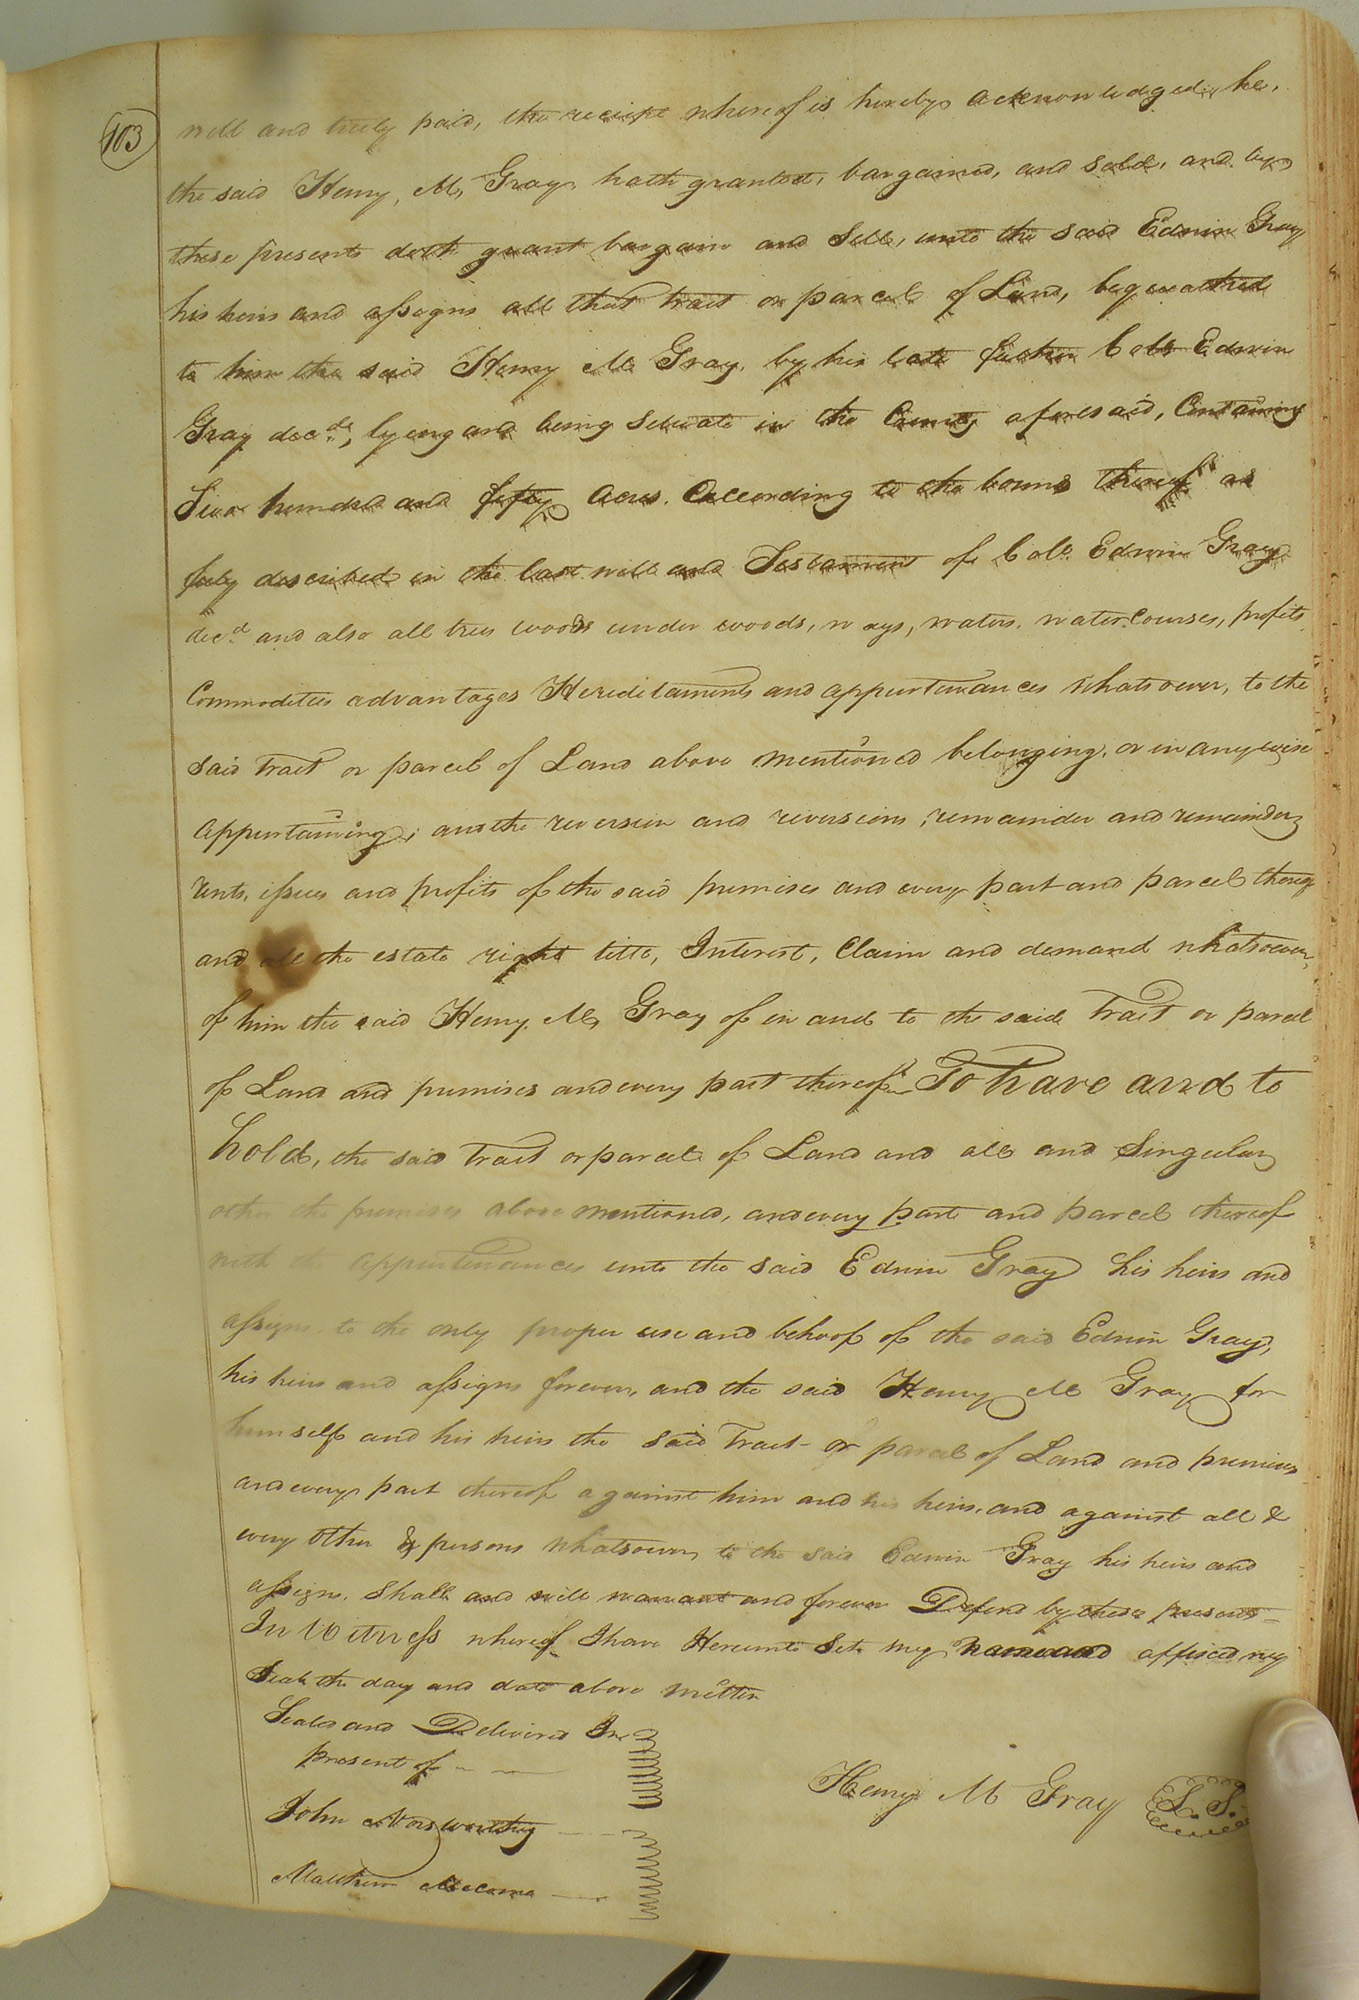 103
well and truly paid, the receipt whereof is hereby acknowledged, he,
the said Henry, M, Gray hath granted, bargained, and sold, and by
these presents doth grant bargain and Sell, unto the said Edwin Gray
his heirs and assigns all that tract or parcel of Land, bequeathed
to him the said Henry M Gray, by his late father Colo Edwin
Gray decd, lying and being Setuate in the County aforesaid, Containing
hundred and fifty Acres. According to the bounds thereof as
fuly described in the last will and Testament of Colo. Edwin Gray
decd and also all trees woods under woods, ways, waters, water Courses, profits
Commodities advantages Hereditaments and appurtenances whatsoever, to the
said tract or parcel of Land above mentioned belonging, or in any wise
appurtaining; and the reversion and reversions, remainder and remainders
rents, issues and profits of the said premises and every part and parcel thereof
and all the estate right title, Interest, Claim and demand whatsoever,
of him the said Henry, M, Gray of in and to the said Tract or parcel
of Land and premises and every part thereof To have and to
hold, the said tract or parcel of Land and all and Singular
other the premises above mentioned, and every part and parcel thereof
with the appurtenances unto the said Edwin Gray his heirs and
assigns to the only proper use and behoof of the said Edwin Gray,
his heirs and assigns forever, and the said Henry M Gray for
himself and his heirs the said Tract or parcel of Land and premises
and every part thereof against him and his heirs, and against all &
every other persons whatsoever, to the said Edwin Gray his heirs and
assigns. Shall and will warrant and forever Defend by these presents
In Witness whereof I have Hereunto Set my name and affixed my
Seal the day and date above written
Sealed and Delivered In
present of
Henry M Gray L. S.
John Norsworthy
Matthew